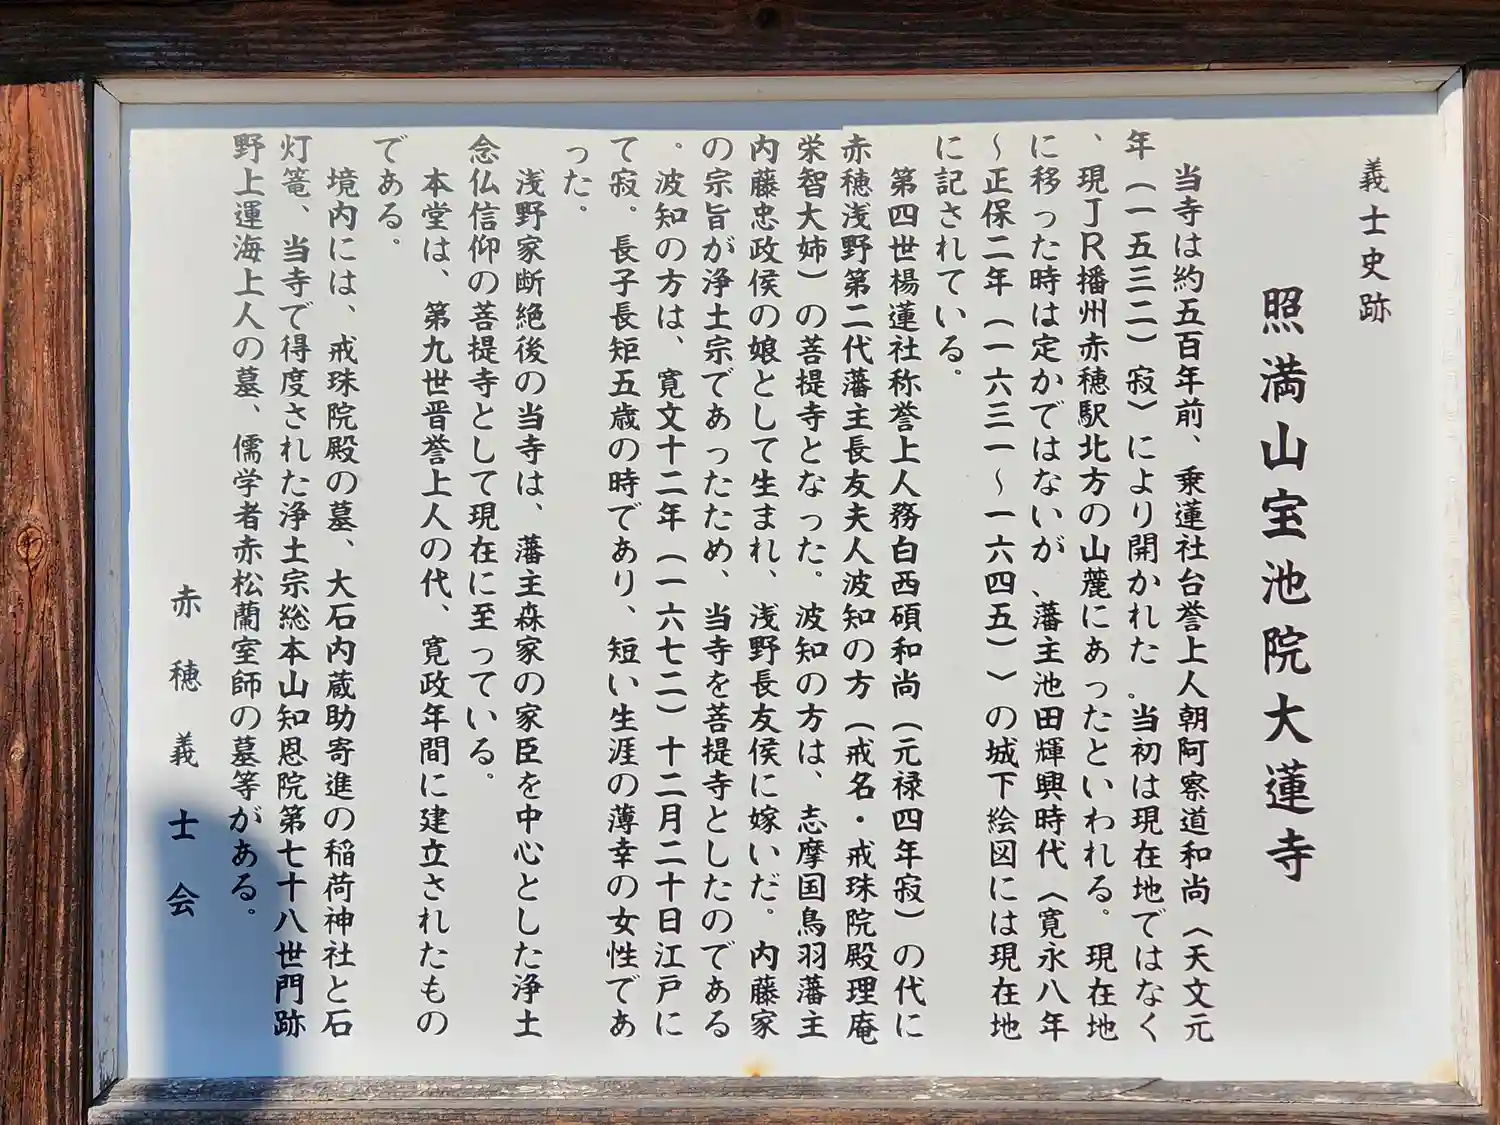 義士史跡
照満山宝池院大蓮寺
当寺は約五百年前、乗蓮社台誉上人朝阿察道和尚〈天文元
年(一五三二)寂〉により開かれた。当初は現在地ではなく
、現JR播州赤穂駅北方の山麓にあったといわれる。現在地
に移った時は定かではないが、藩主池田輝興時代〈寛永八年
~正保二年(一六三一~一六四五)〉の城下絵図には現在地
に記されている。
第四世楊蓮社称誉上人務白西碩和尚(元禄四年寂)の代に
赤穂浅野第二代藩主長友夫人波知の方(戒名・戒珠院殿理庵
栄智大姉)の菩提寺となった。波知の方は、志摩国鳥羽藩主
内藤忠政侯の娘として生まれ、浅野長友侯に嫁いだ。内藤家
の宗旨が浄土宗であったため、当寺を菩提寺としたのである
。波知の方は、寛文十二年(一六七二)十二月二十日江戸に
て寂。長子長矩五歳の時であり、短い生涯の薄幸の女性であ
った。
浅野家断絶後の当寺は、藩主森家の家臣を中心とした浄土
念仏信仰の菩提寺として現在に至っている。
本堂は、第九世晋誉上人の代、寛政年間に建立されたもの
である。
境内には、戒珠院殿の墓、大石内蔵助寄進の稲荷神社と石
灯篭、当寺で得度された浄土宗総本山知恩院第七十八世門跡
野上運海上人の墓、儒学者赤松蘭室師の墓等がある。
赤穂義士会